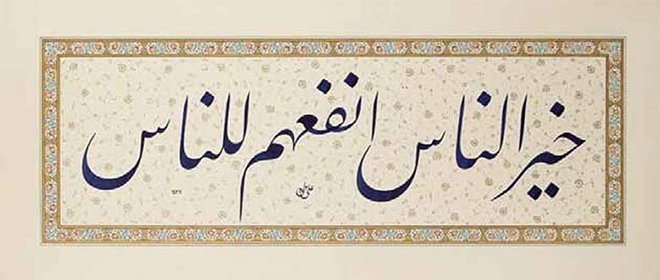 خیر الناس انفعهم للناس